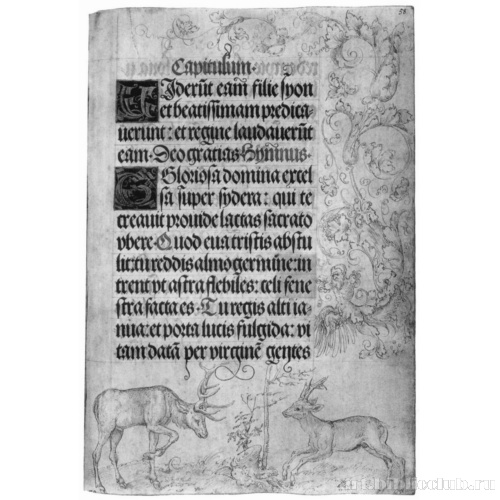 58
Capitulum.
Viderũt eam̃ filie syon
et beatissimam predica
uerunt: et regine laudauerũt
eam. Deo gratias Hymnus.
O Gloriosa domina excel
sa super sydera: qui te
creauit prouide lactas sacrato
vbere. Quod eua tristis abstu
lit: tu reddis almo germine: in
trent vt astra flebiles: celi fene
stra facta es. Tu regis alti ia
nua: et porta lucis fulgida: vi
tam datã per virginẽ gentes